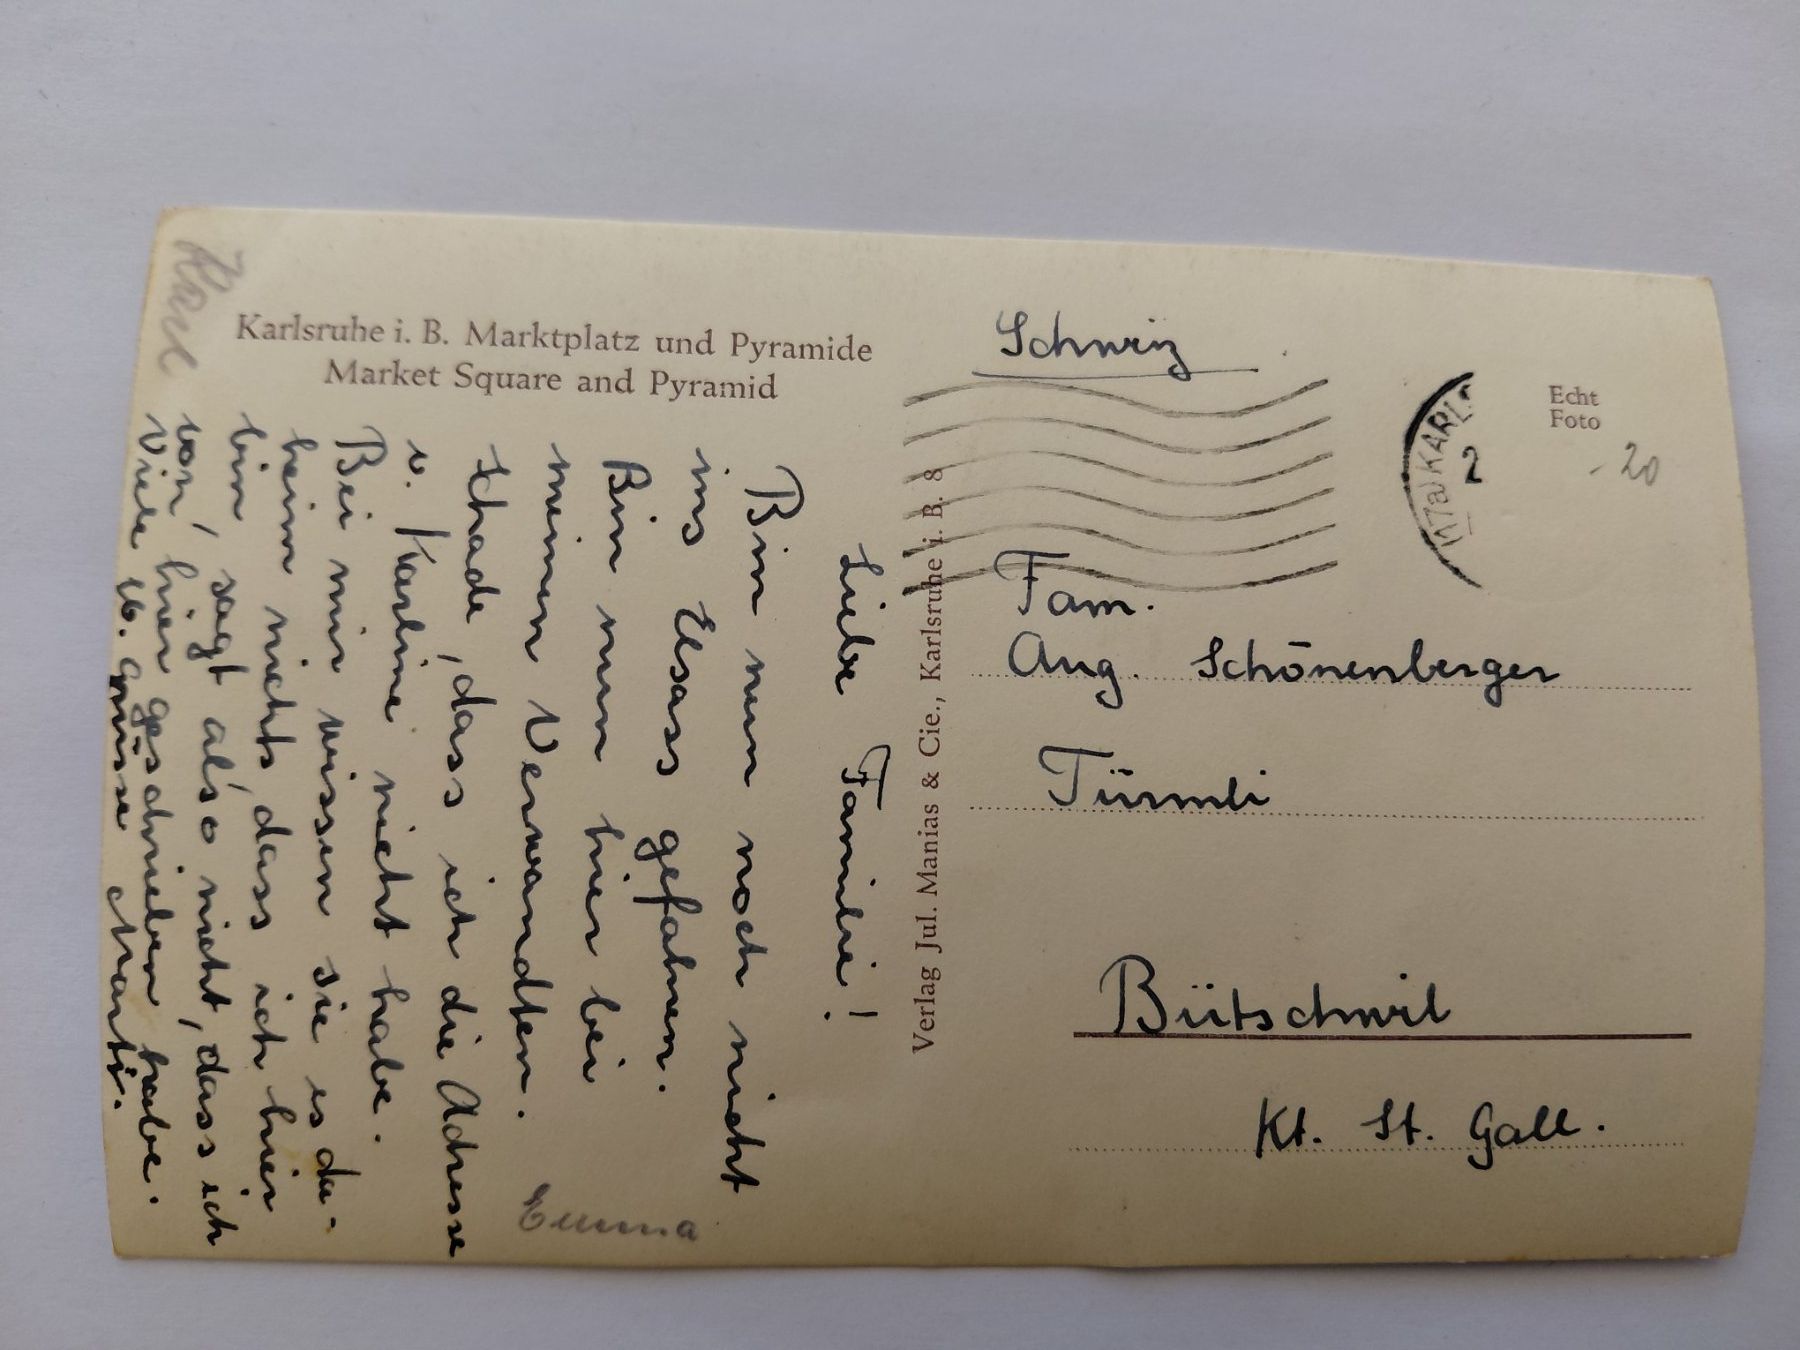 Karl
Karlsruhe i. B. Marktplatz und Pyramide
Market Square and Pyramid
Liebe Familie!
Bin nun noch nicht
ins Elsass gefahren.
Bin nun hier bei
meinen Verwandten.
Schade, dass ich die Adresse
v. Karline nicht habe.
Bei mir wissen sie es da-
heim nicht, dass ich hier
bin, sagt also nicht, dass ich
von hier geschrieben habe.
Viele lb. Grüsse Marti.
Emma
Verlag Jul. Manias & Cie., Karlsruhe i. B. 8
Schweiz
(17a) KARLS
2
Echt
Foto
-20
Fam.
Aug. Schönenberger
Türmli
Bütschwil
Kt. St. Gall.